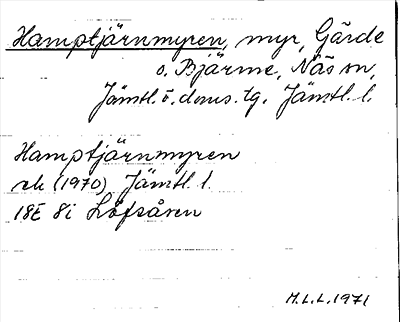 Hamptjärnmyren, myr, Gärde
o. Bjärme, Näs sn,
Jämtl. ö. doms. tg. Jämtl. l.
Hamptjärnmyren
rek (1970) Jämtl l.
18E 8i Löfsåsen
M.L.L. 1971